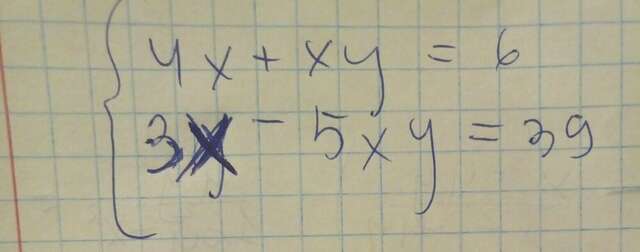 4x + xy = 6
3x - 5xy = 39